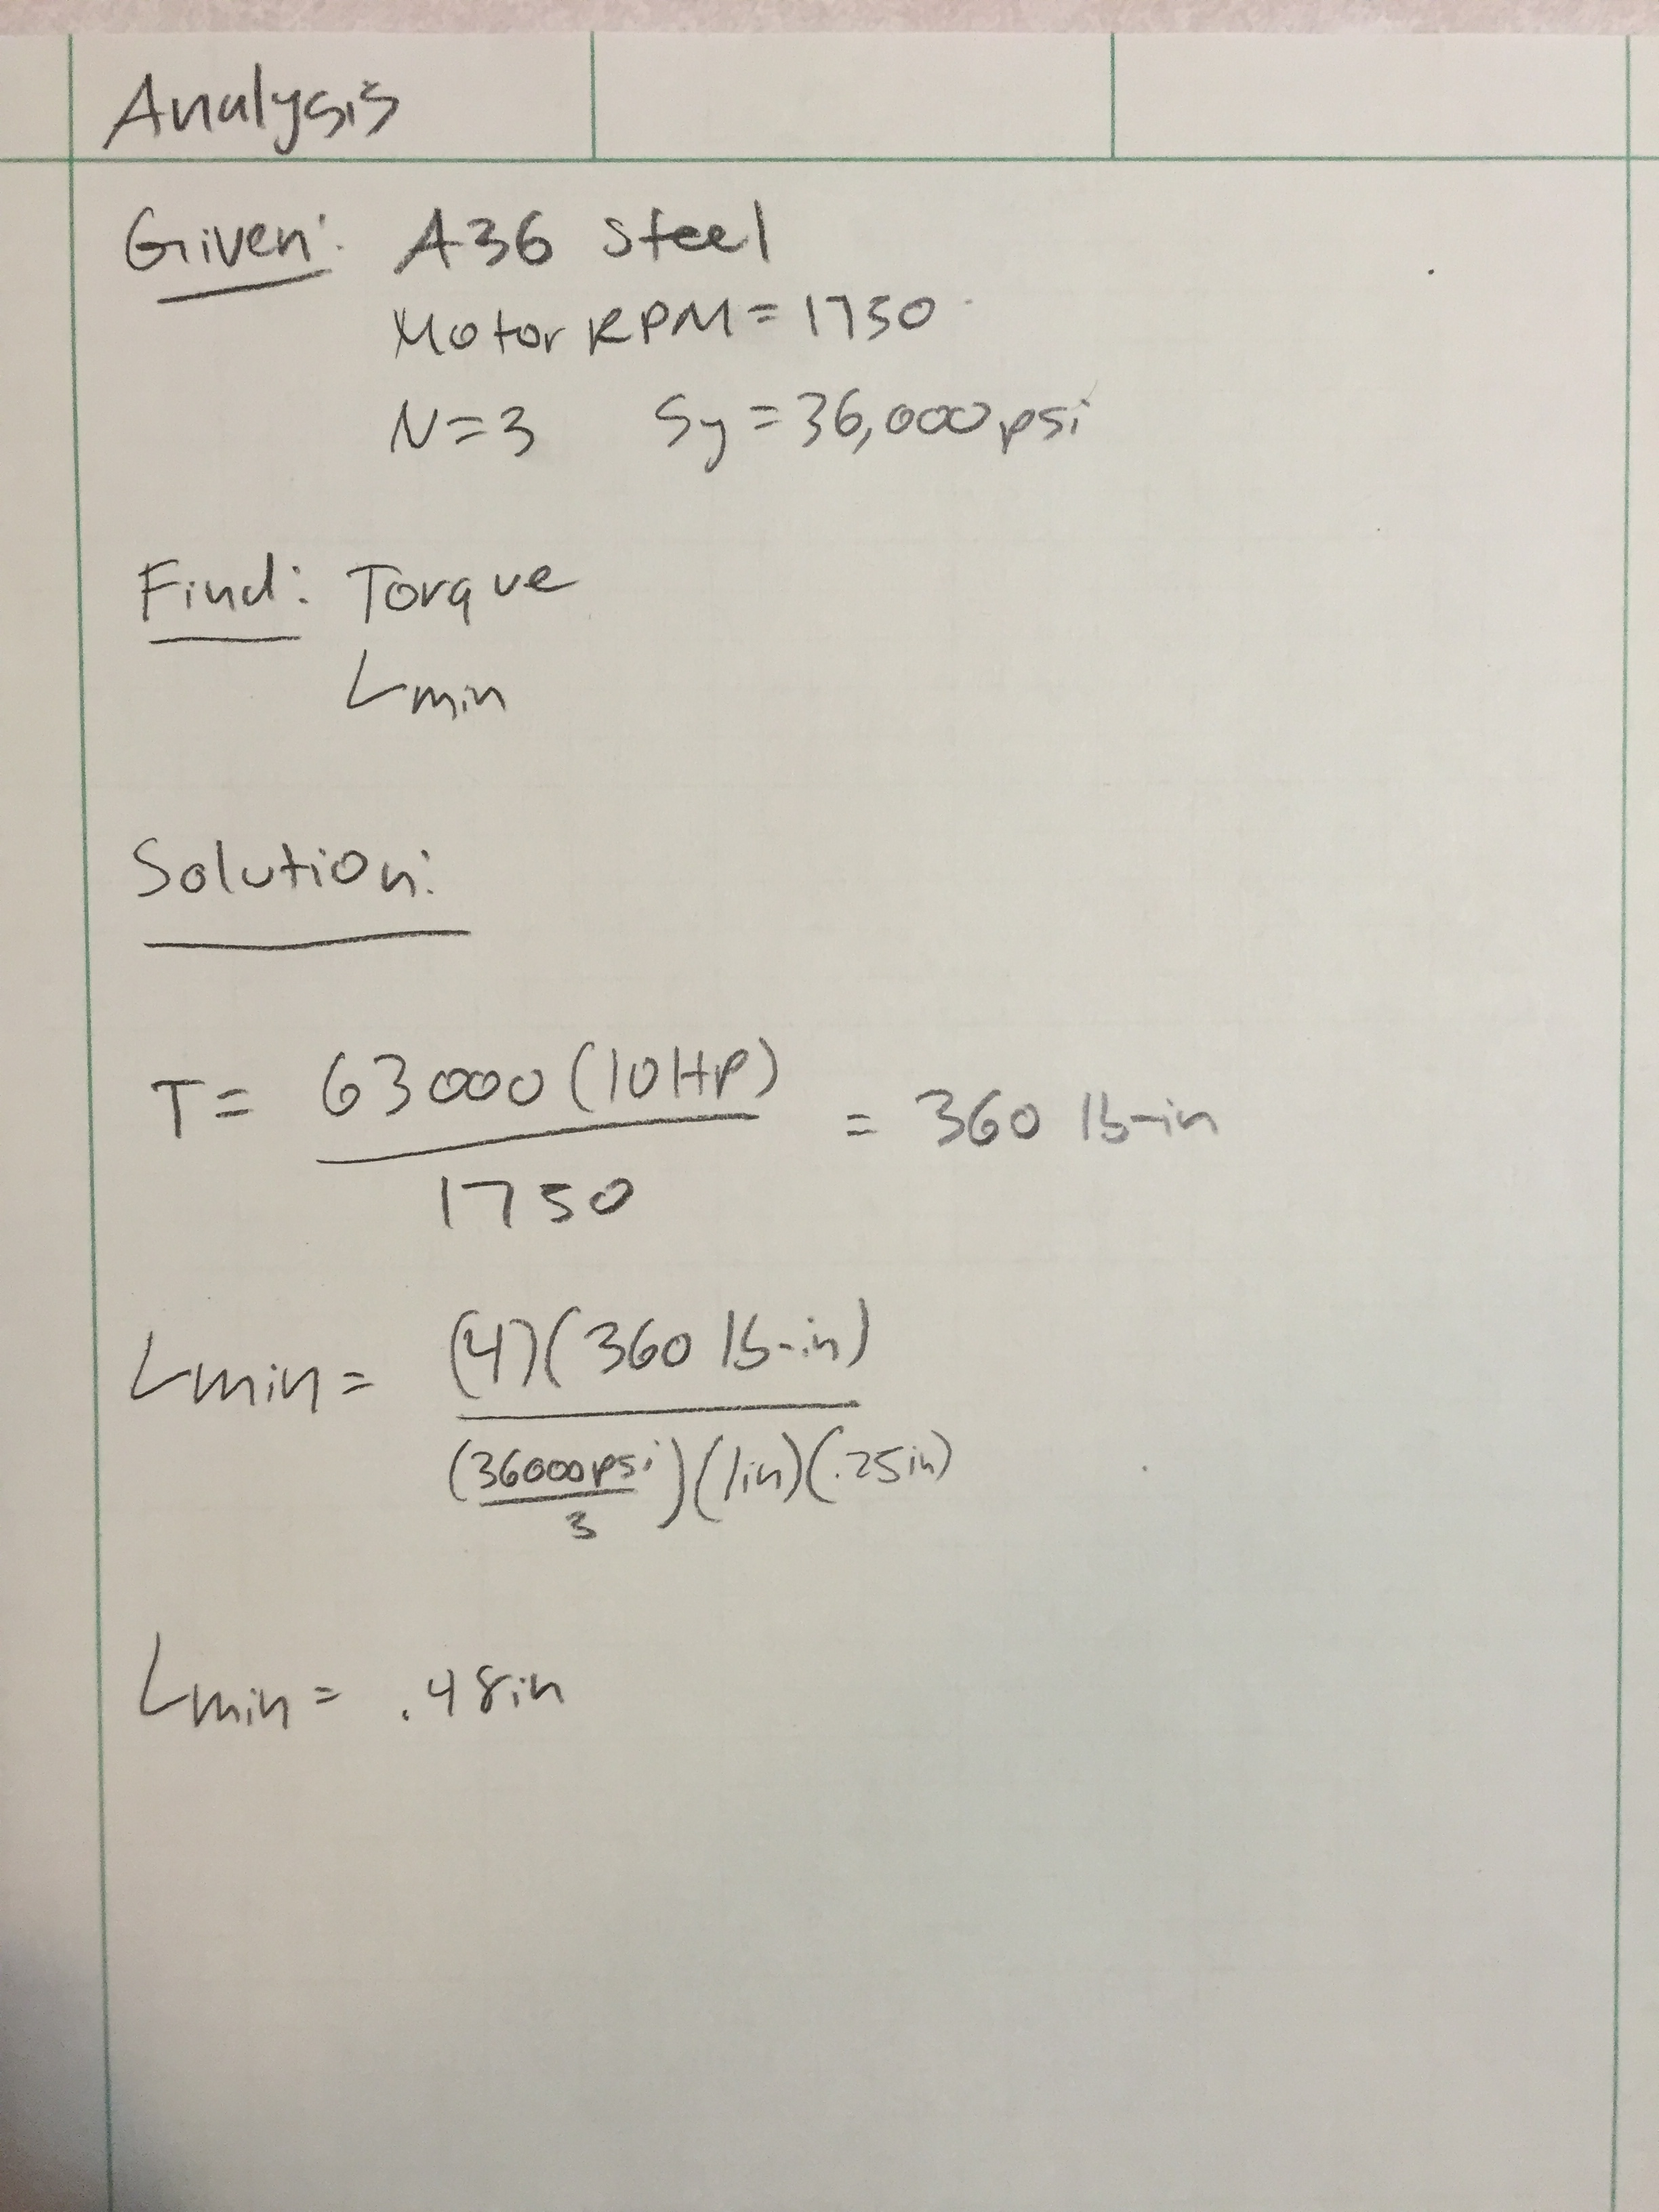 Analysis
Given: A36 steel
Motor RPM = 1750
N=3 Sy = 36,000 psi
Find: Torque
Lmin
Solution:
T = 63000 (10 HP) / 1750 = 360 lb-in
Lmin = (4)(360 lb-in) / (36000psi / 3)(1in)(.25in)
Lmin = .48in